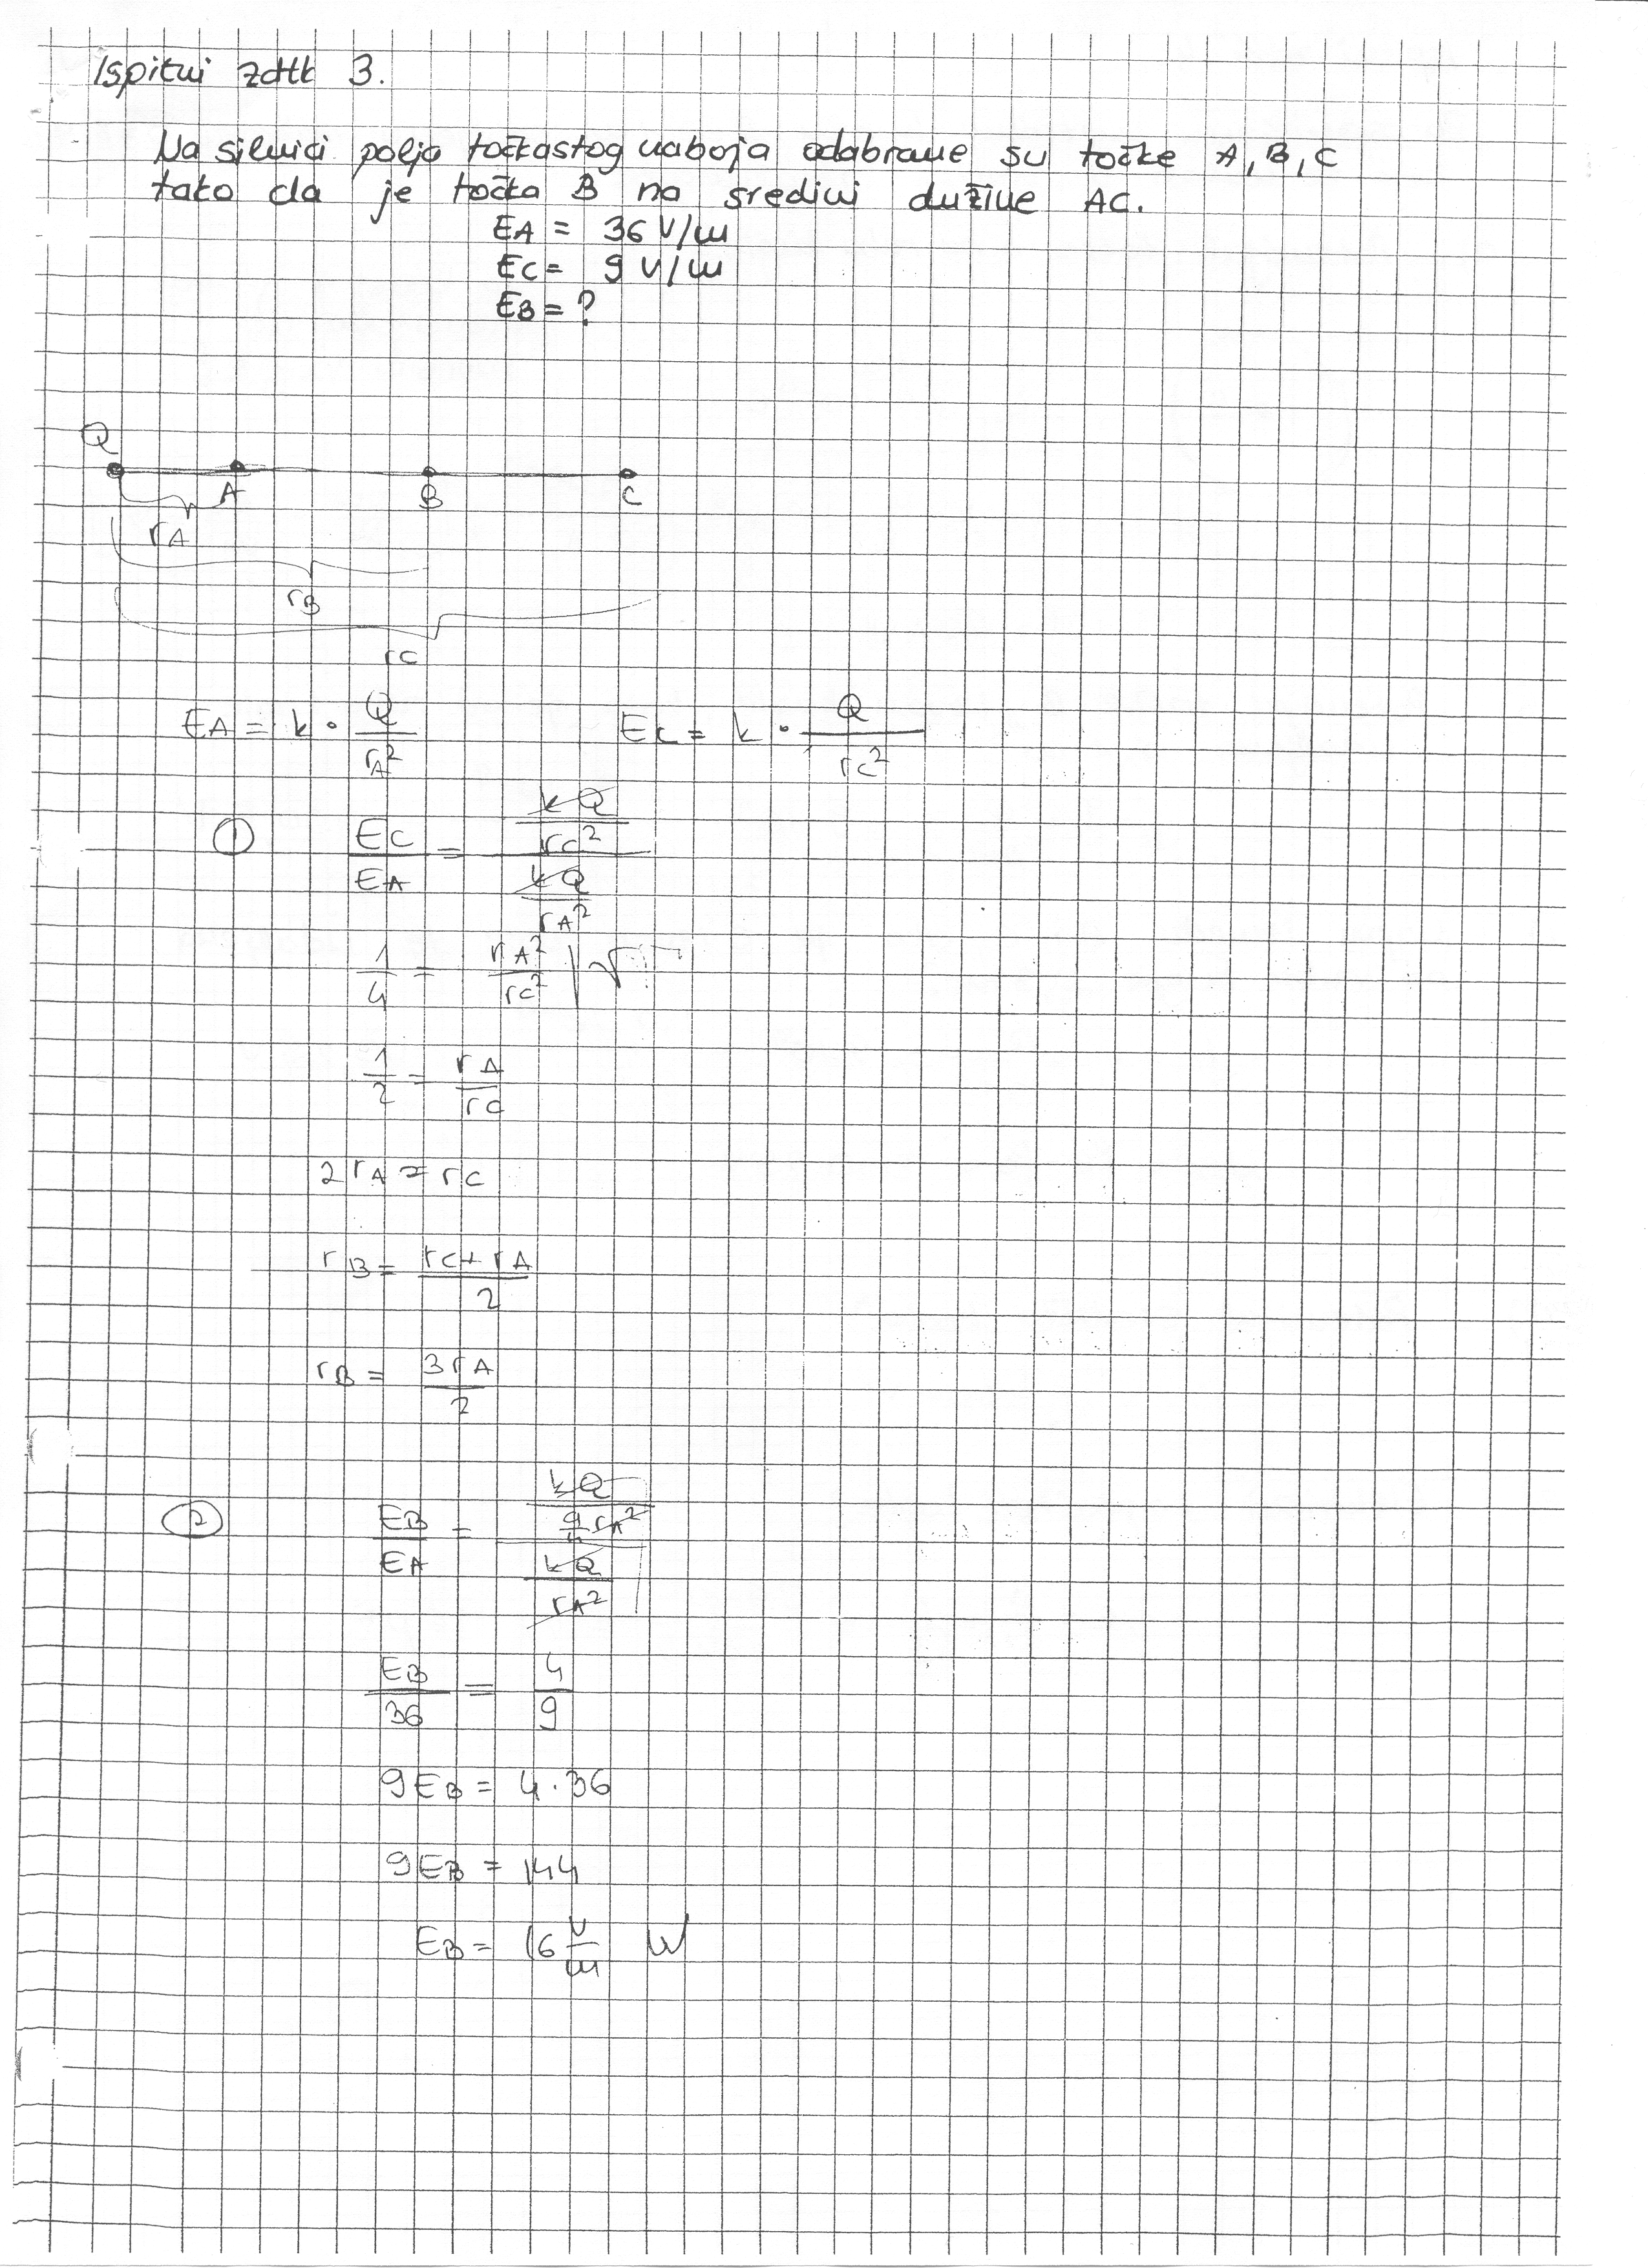 Ispitni zdtk 3.
Na silnici polja točkastog naboja odabrane su točke A, B, C
tako da je točka B na sredini dužine AC.
EA = 36 V/m
EC = 9 V/m
EB = ?
Q
A B C
rA
rB
rC
EA = k · Q/rA² EC = k · Q/rC²
① EC/EA = (kQ/rC²)/(kQ/rA²)
1/4 = rA²/rC² | √
1/2 = rA/rC
2rA = rC
rB = (rC + rA)/2
rB = 3rA/2
② EB/EA = (kQ/(9/4 rA²))/(kQ/rA²)
EB/36 = 4/9
9EB = 4·36
9EB = 144
EB = 16 V/m